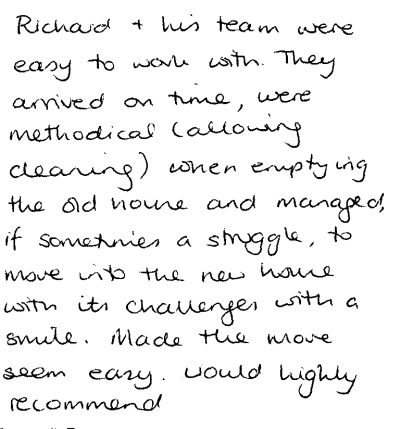 Richard + his team were
easy to work with. They
arrived on time, were
methodical (allowing
cleaning) when emptying
the old house and managed,
if sometimes a struggle, to
move into the new house
with its challenges with a
smile. Made the move
seem easy. would highly
recommend